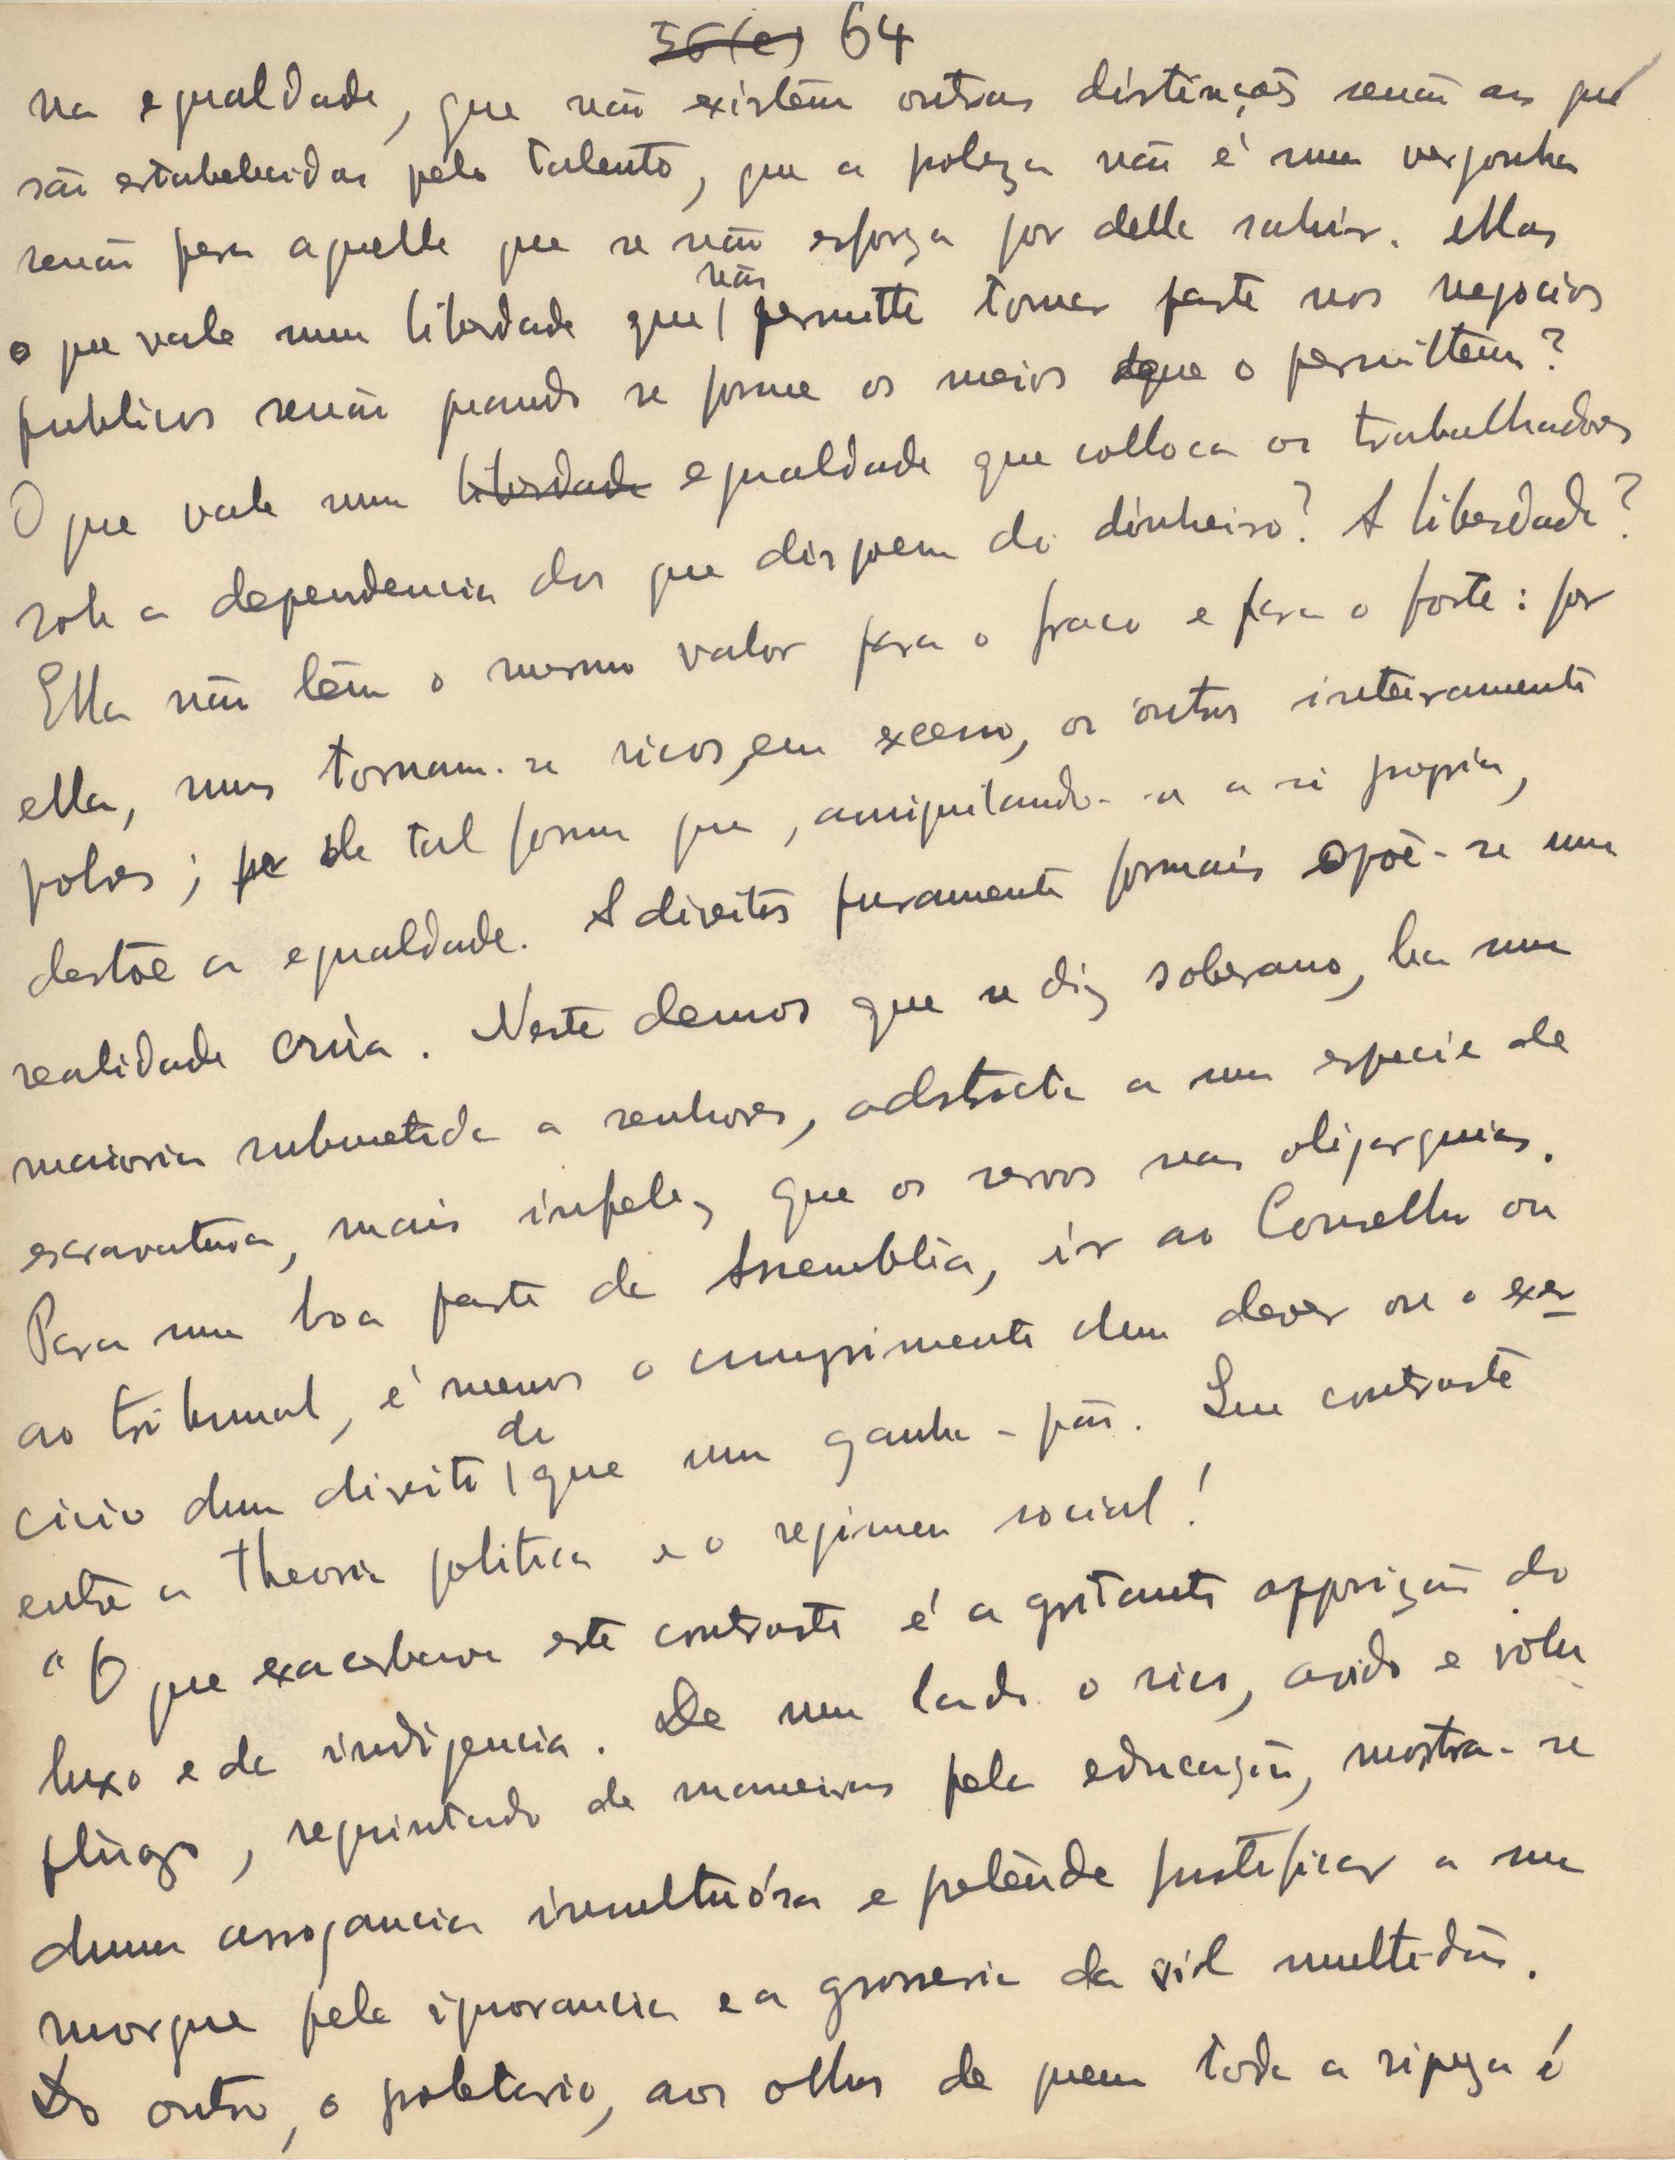 56(e) 64
na egualdade, que não existem outras distincções senão as que
são estabelecidas pelo talento, que a pobreza não é uma vergonha
senão para aquelle que se não esforça por della sahir. Mas
o que vale uma liberdade que não permitte tomar parte nos negocios
publicos senão quando se forme os meios que o permittem?
O que vale uma liberdade egualdade que colloca os trabalhadores
sob a dependencia dos que dispoem do dinheiro? A liberdade?
Ella não têm o mesmo valor para o fraco e para o forte: por
ella, uns tornam-se ricos, em excesso, os outros inteiramente
pobres; de tal forma que, aniquilando-se a si propria,
destróe a egualdade. A direitos puramente formais opõe-se uma
realidade crúa. Neste demos que se diz soberano, ha uma
maioria submetida a senhores, adstricta a uma especie de
escravatura, mais infeliz que os servos nas oligarquias.
Para uma boa parte da Assembleia, ir ao Conselho ou
ao tribunal, é menos o cumprimento dum dever ou o exer-
cicio dum direito do que um ganha-pão. Que contraste
entre a theoria politica e o regimen social!
"O que exacerbava este contraste é a gritante opposição do
luxo e da indigencia. De um lado o rico, avido e volu-
ptuoso, requintado de maneiras pela educação, mostra-se
duma arrogancia insultuósa e pretende justificar a sua
morgue pela ignorancia e a grosseria da vil multidão.
Do outro, o proletario, aos olhos de quem toda a riqueza é